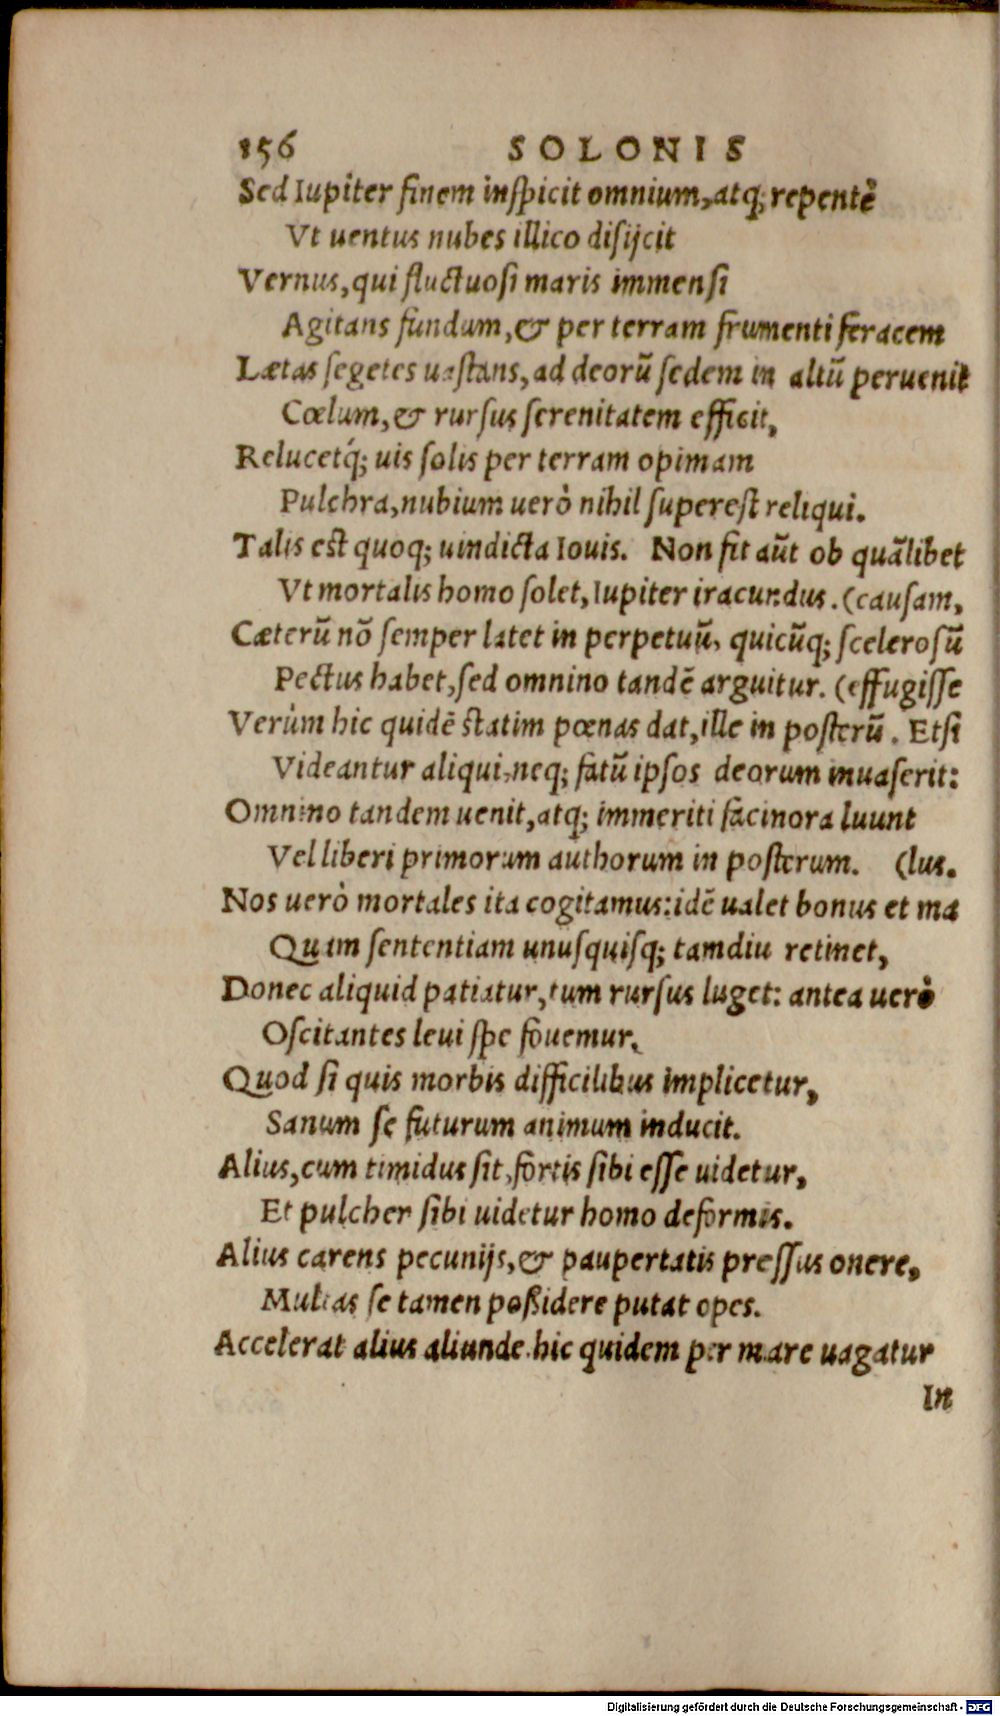 156 SOLONIS
Sed Iupiter finem inſpicit omnium, atq; repentè
Vt uentus nubes illico diſijcit
Vernus, qui fluctuoſi maris immenſi
Agitans fundum, & per terram frumenti feracem
Lætas ſegetes uaſtans, ad deorũ ſedem in altũ peruenit
Cœlum, & rurſus ſerenitatem efficit,
Relucetq́; uis ſolis per terram opimam
Pulchra, nubium uerò nihil ſupereſt reliqui.
Talis eſt quoq; uindicta Iouis. Non fit aũt ob quãlibet
Vt mortalis homo ſolet, Iupiter iracundus. (cauſam,
Cæterũ nõ ſemper latet in perpetuũ, quicũq; ſceleroſũ
Pectus habet, ſed omnino tandẽ arguitur. (effugiſſe
Verùm hic quidẽ ſtatim pœnas dat, ille in poſterũ. Etſi
Videantur aliqui, neq; fatũ ipſos deorum inuaſerit:
Omnino tandem uenit, atq; immeriti facinora luunt
Vel liberi primorum authorum in poſterum. (lus.
Nos uerò mortales ita cogitamus: idẽ ualet bonus et ma
Quam ſententiam unuſquiſq; tamdiu retinet,
Donec aliquid patiatur, tum rurſus luget: antea uerò
Oſcitantes leui ſpe fouemur.
Quod ſi quis morbis difficilibus implicetur,
Sanum ſe futurum animum inducit.
Alius, cum timidus ſit, fortis ſibi eſſe uidetur,
Et pulcher ſibi uidetur homo deformis.
Alius carens pecunijs, & paupertatis preſſus onere,
Multas ſe tamen poßidere putat opes.
Accelerat alius aliunde. hic quidem per mare uagatur
In
Digitalisierung gefördert durch die Deutsche Forschungsgemeinschaft - DFG